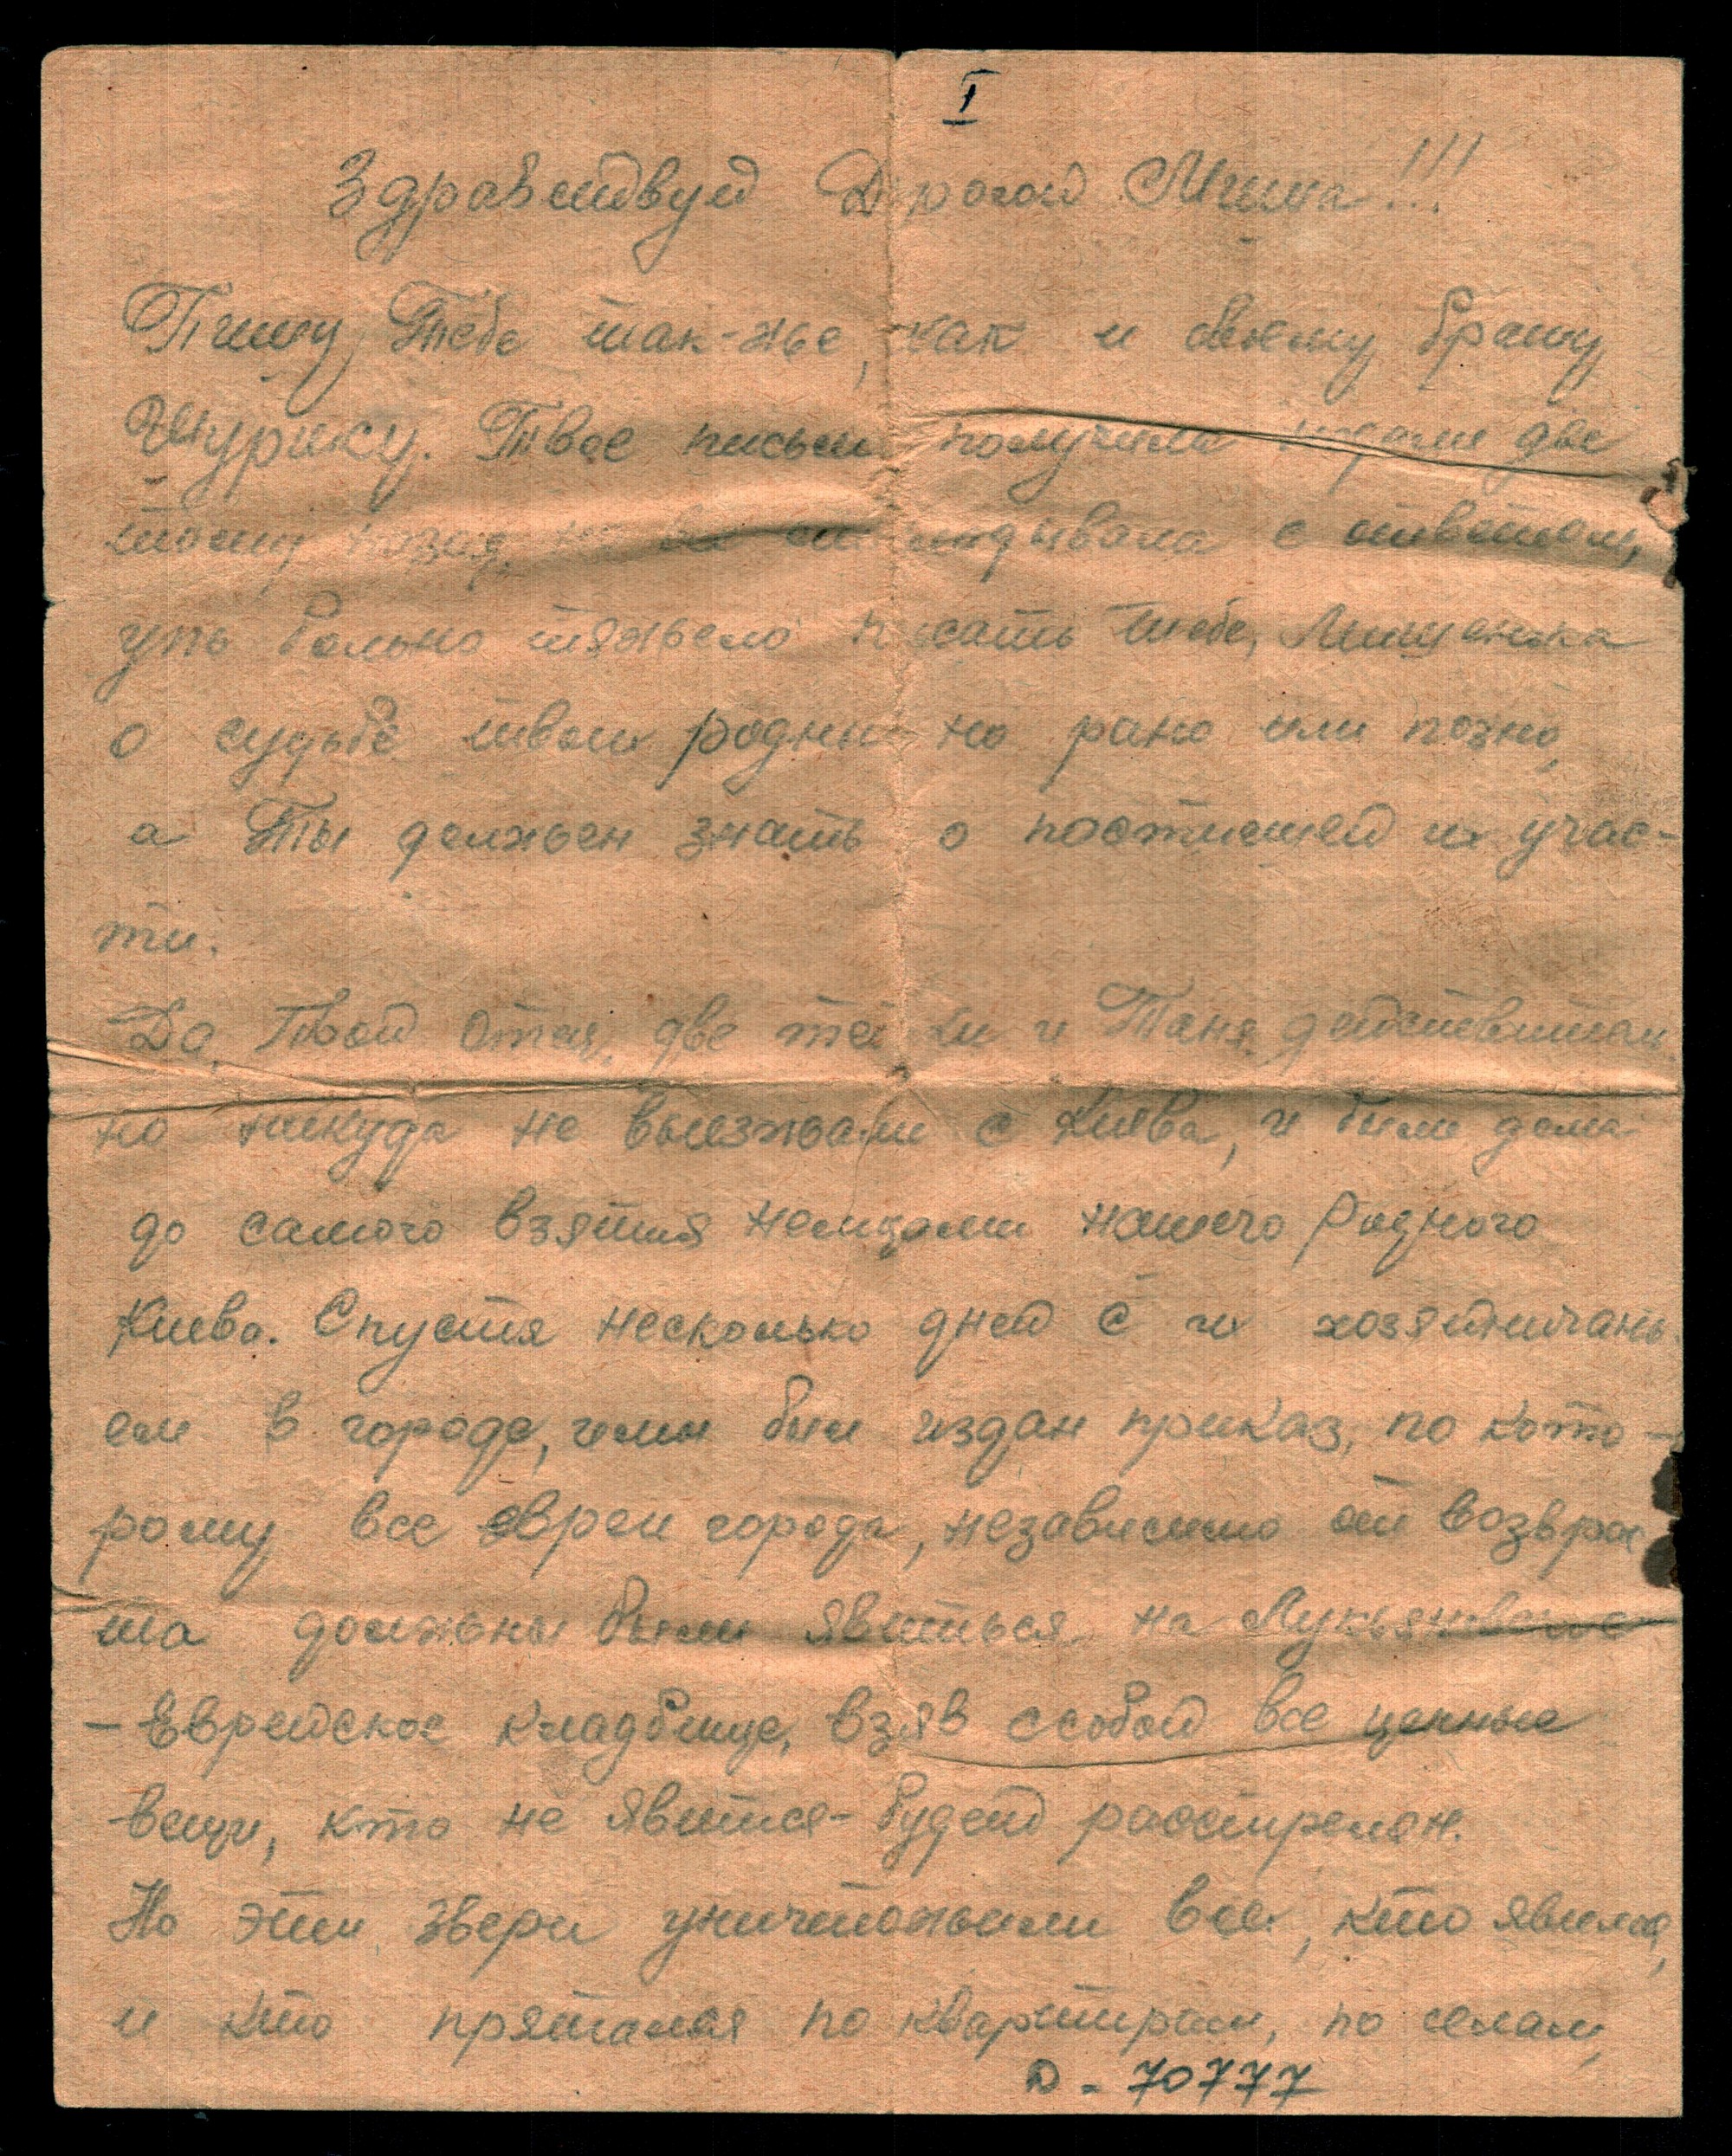 I
Здравствуй Дорогой Миша!!!
Пишу Тебе так-же, как и своему брату
Шурику. Твое письмо получила недели две
тому назад, но все откладывала с ответом,
уть больно тяжело писать тебе, Мишенька
о судьбе твоих родных но рано или позно,
а Ты должен знать о постигшей их учас-
ти.
Да, Твой Отец, две тетки и Таня действитель
но никуда не выезжали с Киева, и были дома
до самого взятия немцами нашего Родного
Киева. Спустя несколько дней с их хозяйничань
ем в городе, ими был издан приказ, по кото-
рому все евреи города, независимо от возврас
та должны были явиться на Лукьяновское
-Еврейское кладбище, взяв ссобой все ценные
вещи, кто не явится - будет расстрелян.
Но эти звери уничтожили всех, кто явился,
и кто прятался по квартирам, по селам,
D - 70777